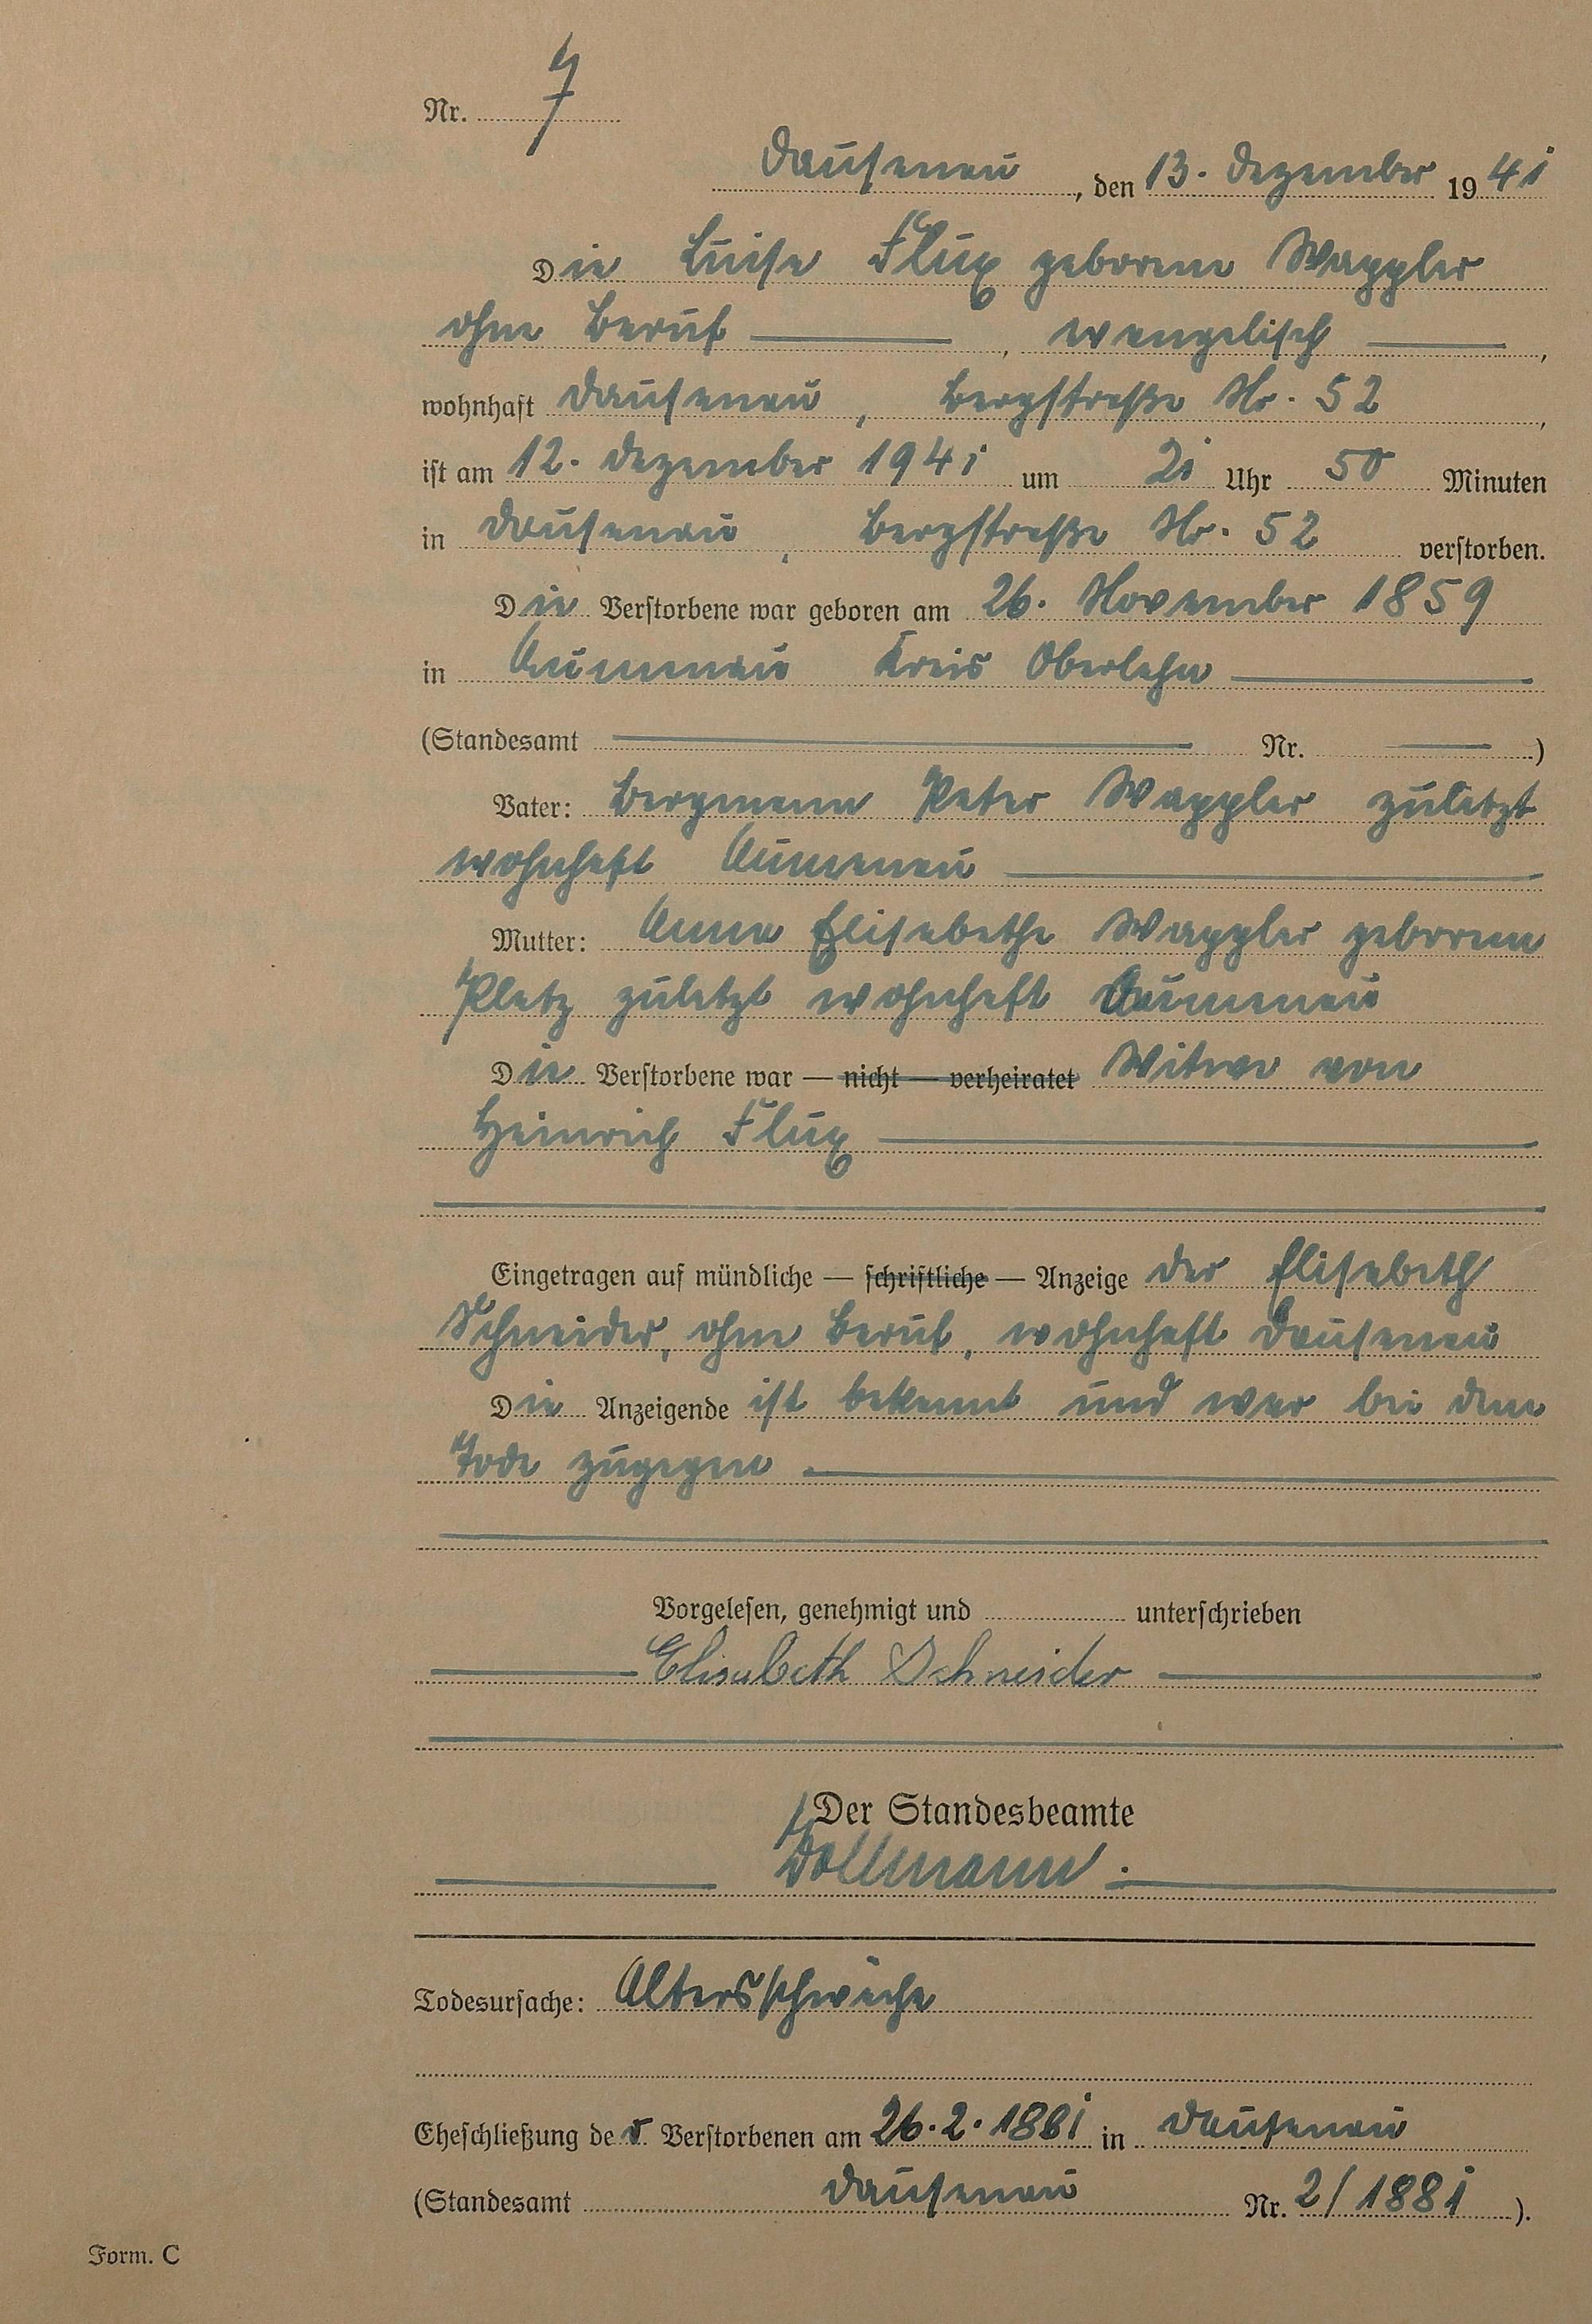 Nr. 7
Dausenau, den 13. Dezember 1941
Die Luise Flux geborene Wappler
ohne Beruf, evangelisch,
wohnhaft Dausenau, Bergstraße Nr. 52,
ist am 12. Dezember 1941 um 21 Uhr 50 Minuten
in Dausenau, Bergstraße Nr. 52 verstorben.
Die Verstorbene war geboren am 26. November 1859
in Aumenau Kreis Oberlahn
(Standesamt Nr. )
Vater: Bergmann Peter Wappler zuletzt
wohnhaft Aumenau
Mutter: Anna Elisabethe Wappler geborene
Platz zuletzt wohnhaft Aumenau
Die Verstorbene war — nicht — verheiratet Witwe von
Heinrich Flux
Eingetragen auf mündliche — schriftliche — Anzeige der Elisabeth
Schneider, ohne Beruf, wohnhaft Dausenau
Die Anzeigende ist bekannt und war bei dem
Tode zugegen
Vorgelesen, genehmigt und unterschrieben
Elisabeth Schneider
Der Standesbeamte
Dollmann.
Todesursache: Altersschwäche
Eheschließung der Verstorbenen am 26.2.1881 in Dausenau
(Standesamt Dausenau Nr. 2/1881).
Form. C